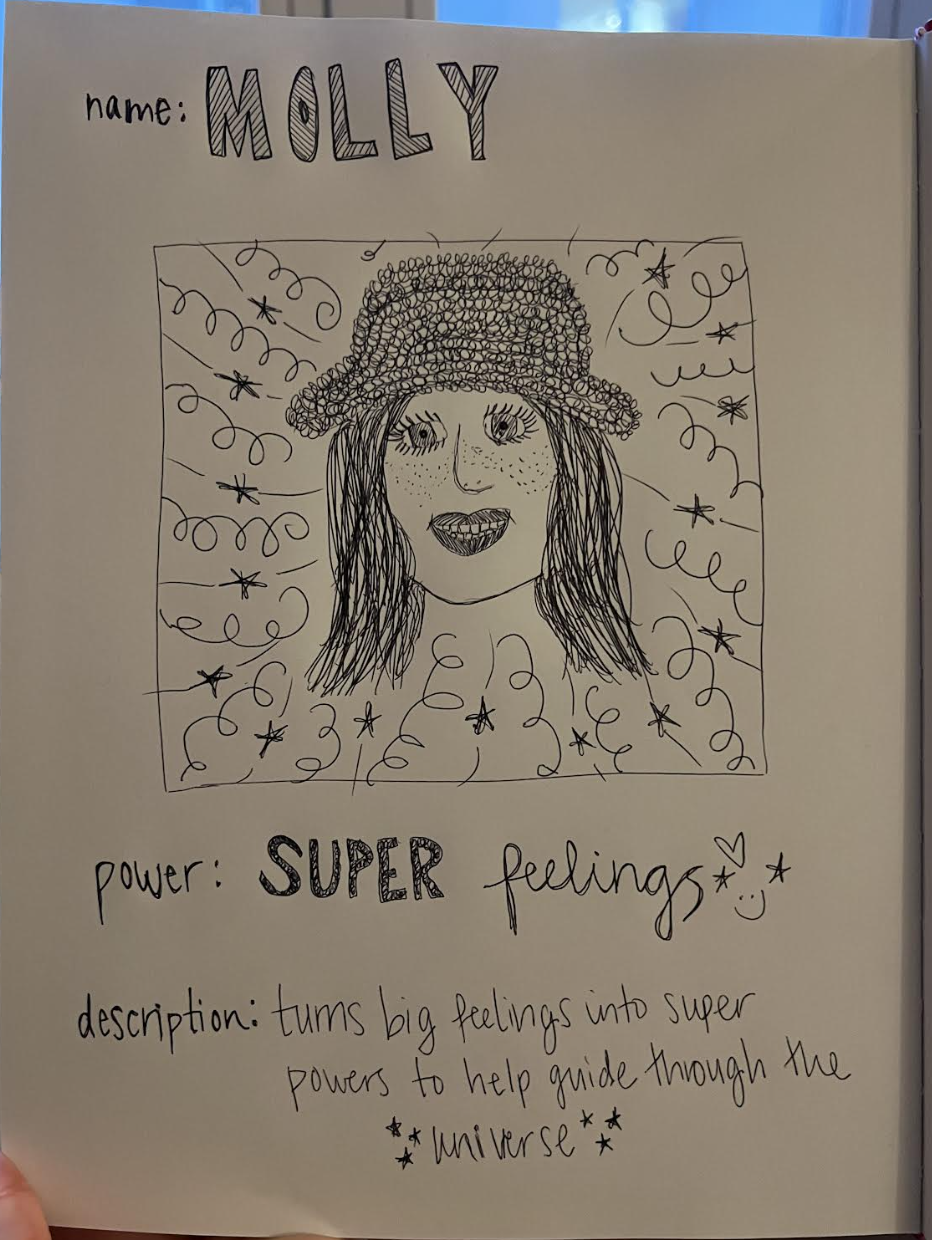 name: MOLLY
power: SUPER feelings
description: turns big feelings into super
powers to help guide through the
universe